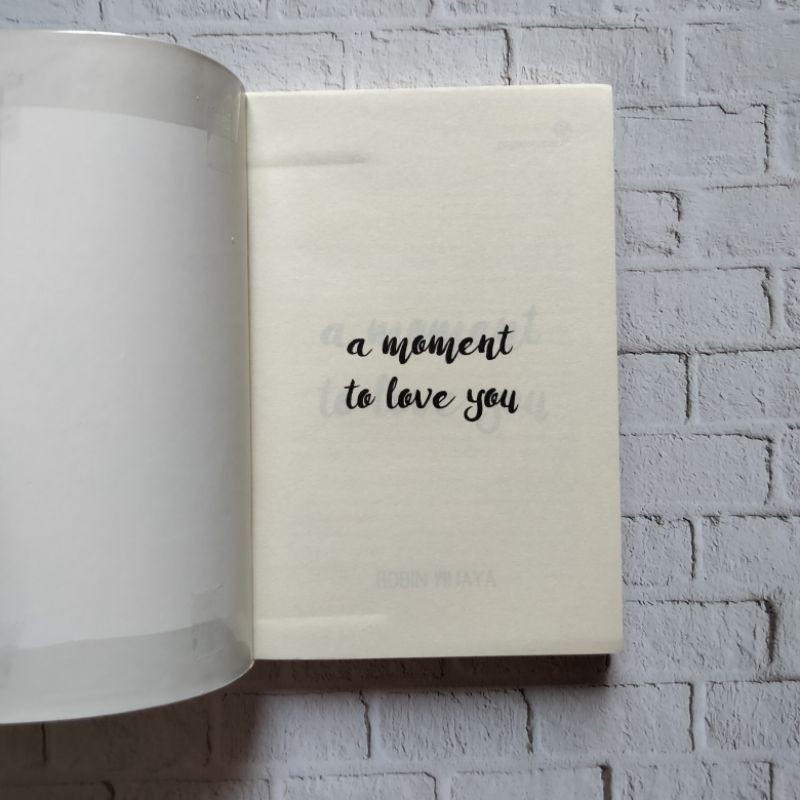 a moment
to love you